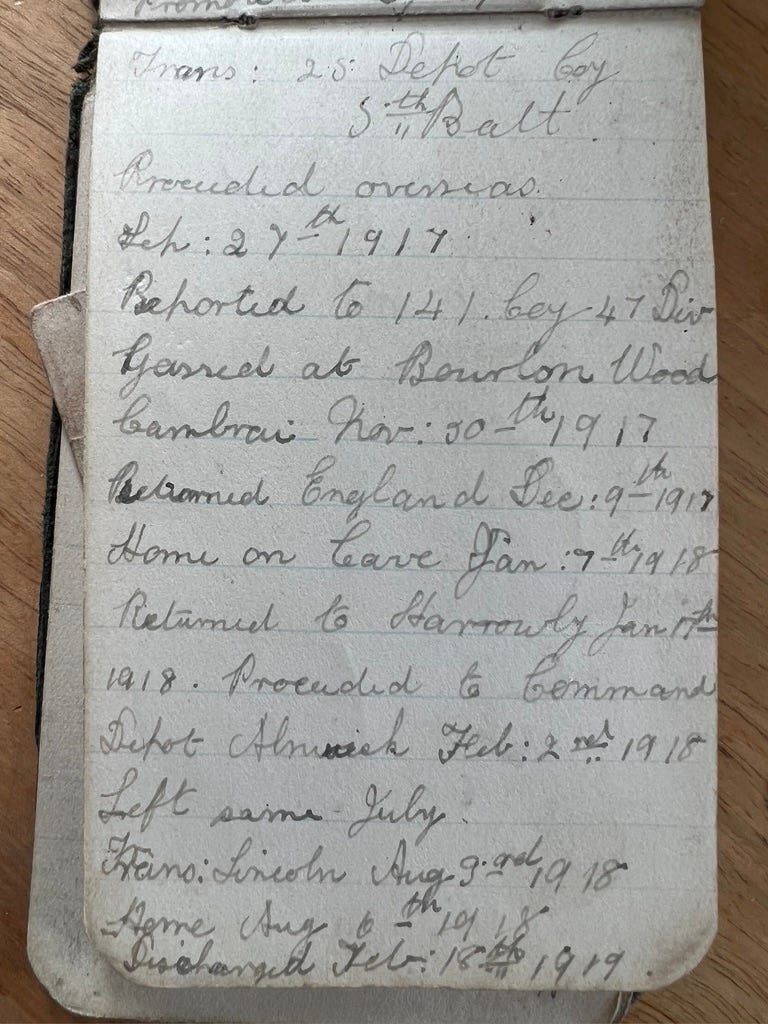 Trans: 25 Depot Coy
5th Batt.
Proceeded overseas.
Sep: 27th 1917
Reported to 141. Coy 47 Div
Gassed at Bourlon Wood
Cambrai Nov: 30th 1917
Returned England Dec: 9th 1917
Home on leave Jan: 7th 1918
Returned to Harrowby Jan 17th
1918. Proceeded to Command
Depot Alnwick Feb: 2nd 1918
Left same July.
Trans: Lincoln Aug 3rd 1918
Home Aug 6th 1918
Discharged Feb: 18th 1919.